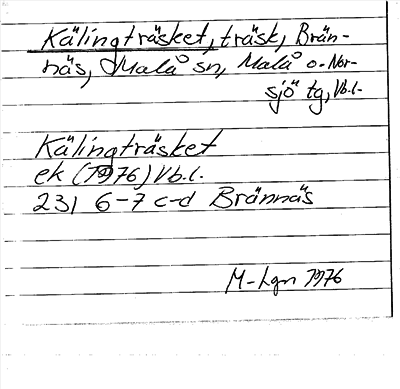 Kälingträsket, träsk, Brän-
näs, Malå sn, Malå o. Nor-
sjö tg, Vb.l.
Kälingträsket
ek (1976) Vb.l.
231 6-7 c-d Brännäs
M-Lgn 1976